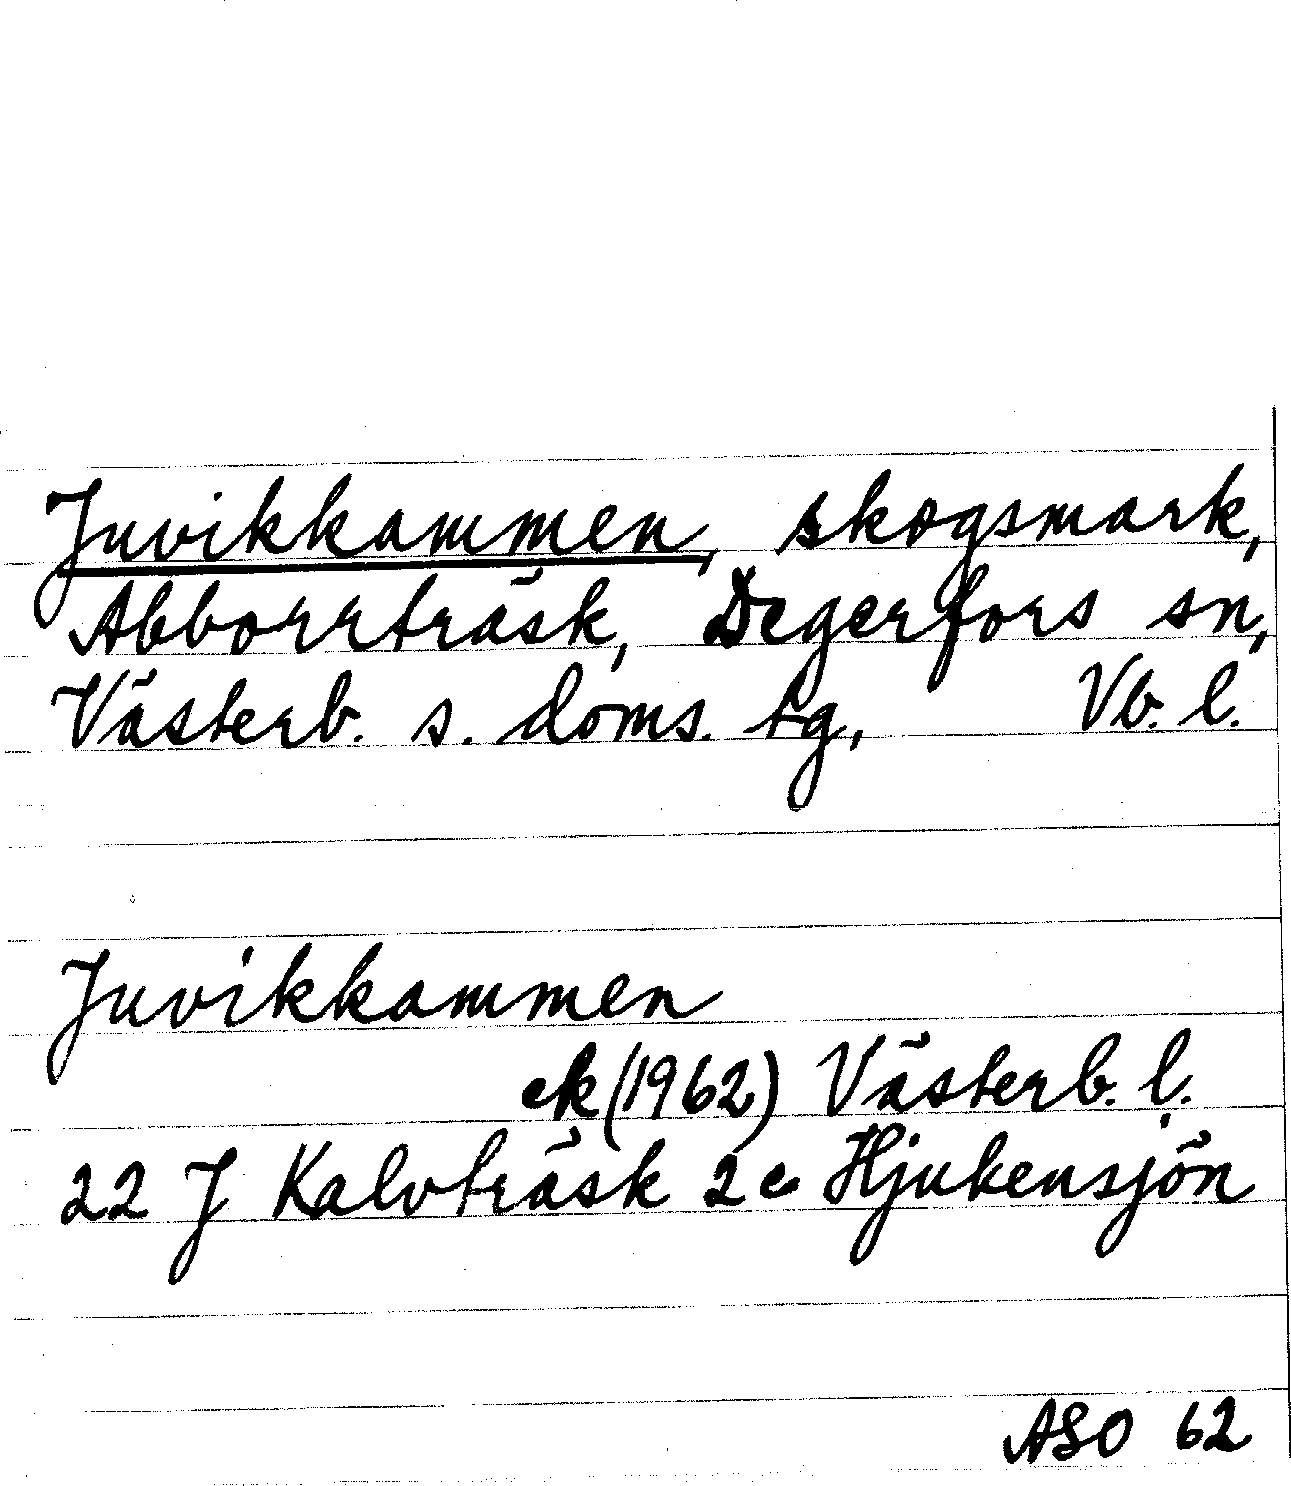 Juvikkammen, skogsmark,
Abborrträsk, Degerfors sn,
Västerb. s. doms. tg, Vb. l.
Juvikkammen
ek (1962) Västerb. l.
22 J Kalvträsk 2 c Hjukensjön
ASO 62